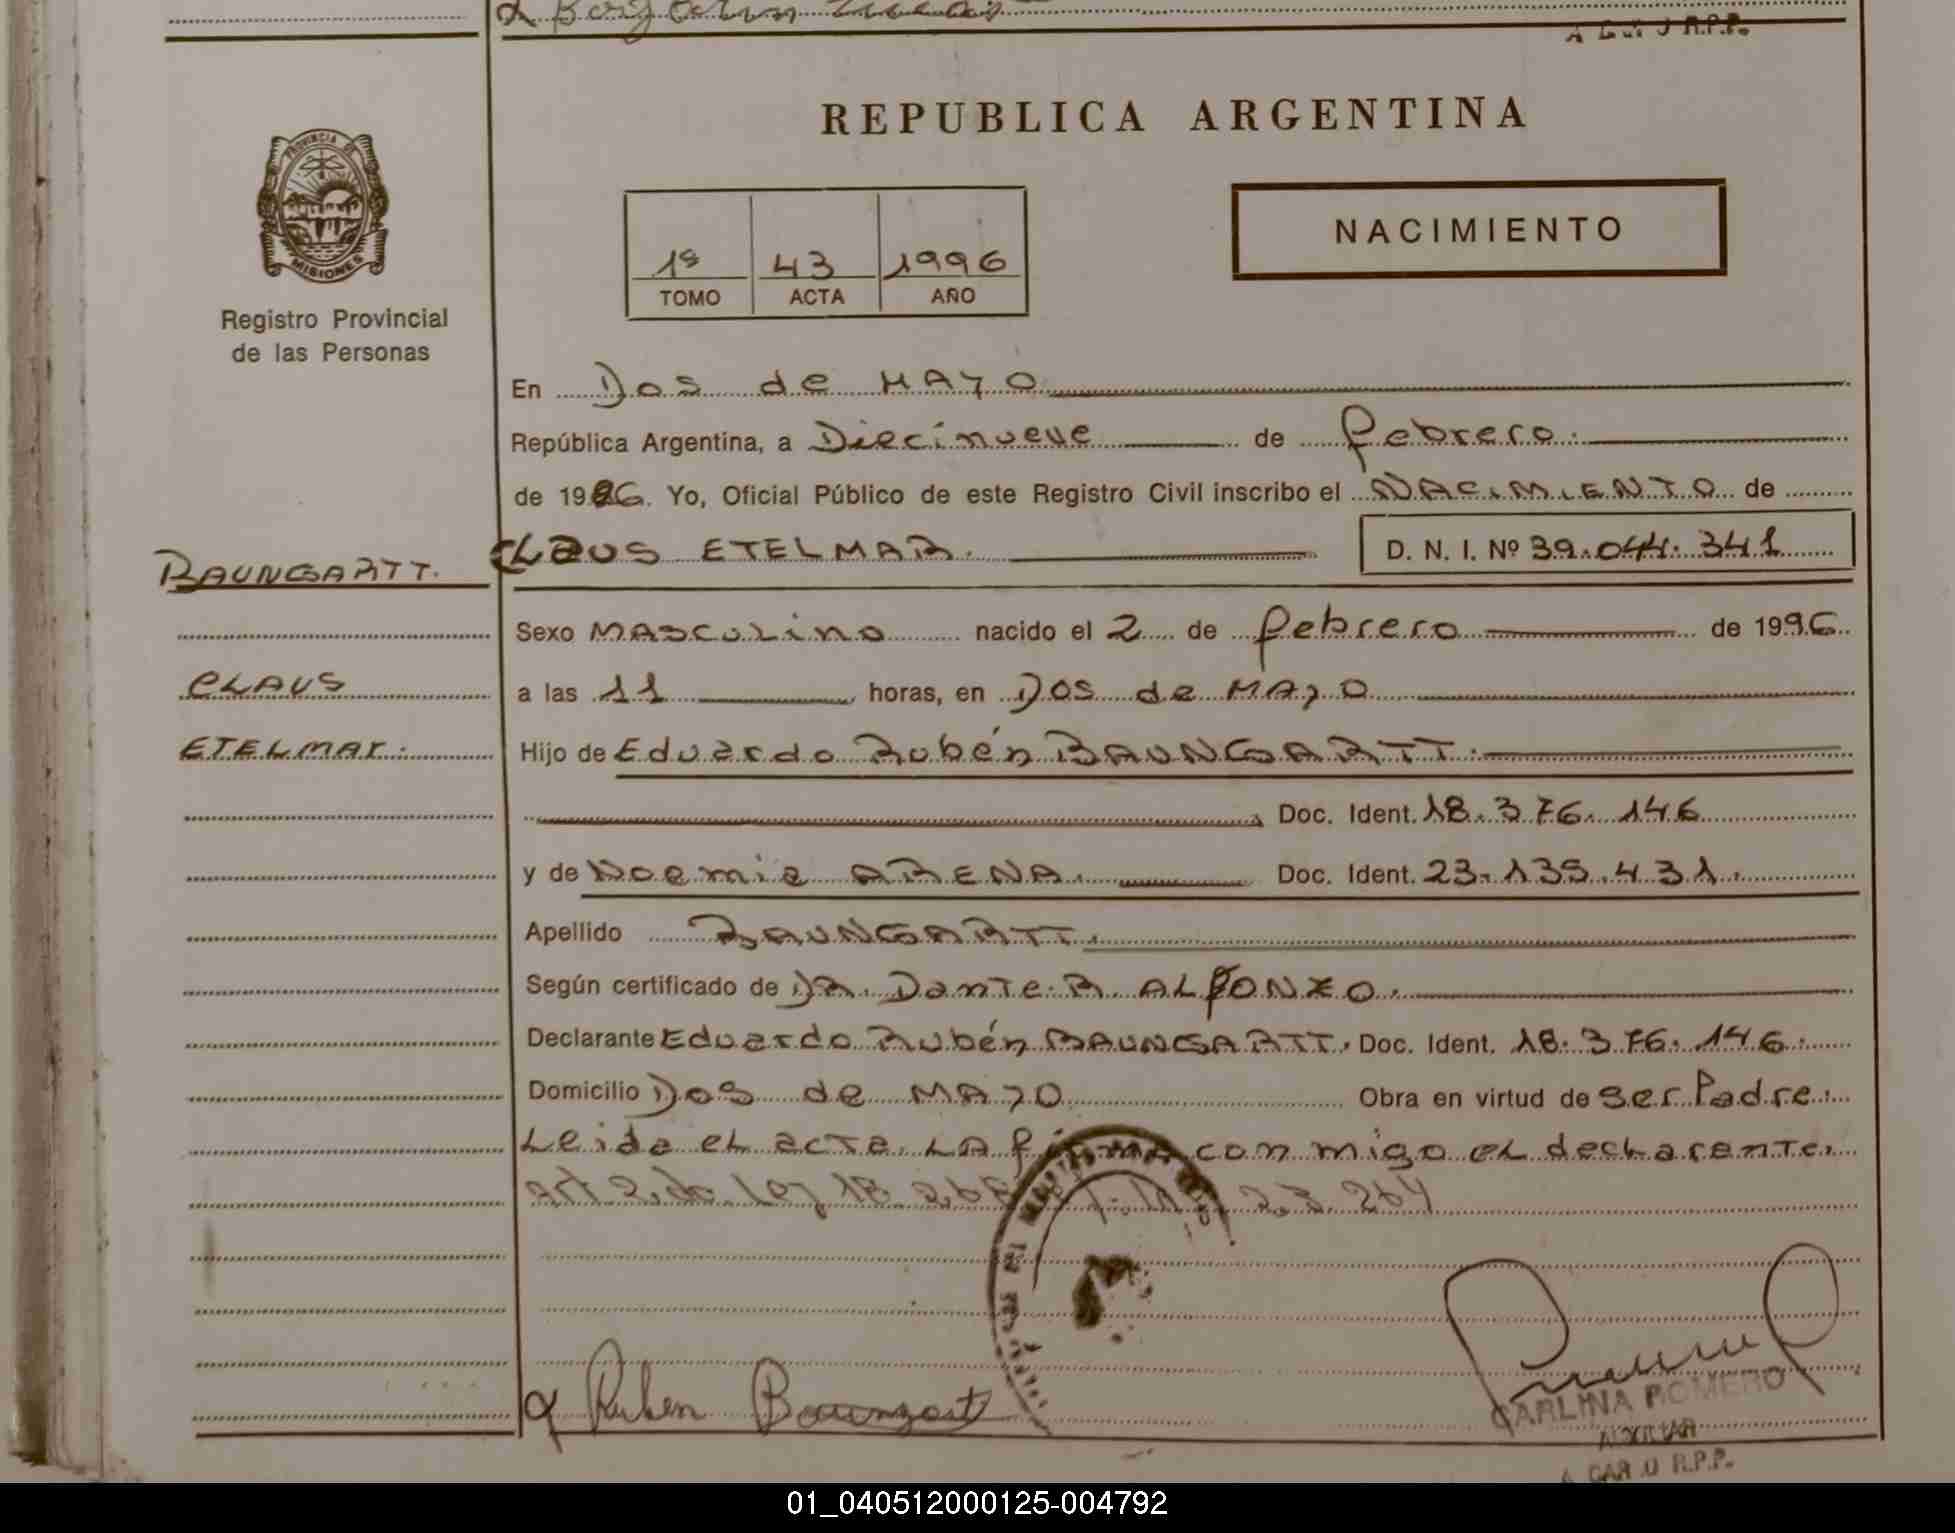 REPUBLICA ARGENTINA
PROVINCIA DE
MISIONES
Registro Provincial
de las Personas
1º 43 1996
TOMO ACTA AÑO
NACIMIENTO
En Dos de MAYO
República Argentina, a Diecinueve de febrero.
de 1996. Yo, Oficial Público de este Registro Civil inscribo el NACIMIENTO de
BAUNGARTT. CLAUS ETELMAR. D. N. I. Nº 39.044.341
Sexo MASCULINO nacido el 2 de febrero de 1996
CLAUS a las 11 horas, en Dos de MAYO
ETELMAR. Hijo de Eduardo Rubén BAUNGARTT.
Doc. Ident. 18.376.146
y de Noemia ARENA. Doc. Ident. 23.135.431.
Apellido BAUNGARTT.
Según certificado de DR. Dante R. ALFONZO.
Declarante Eduardo Rubén BAUNGARTT. Doc. Ident. 18.376.146.
Domicilio Dos de MAYO Obra en virtud de ser Padre.
Leida el acta, LA firma conmigo el declarante.
art 2 de ley 18.268 23.264
Ruben Baungart
CARLINA ROMERO
AUXILIAR
A CAR U R.P.P.
01_040512000125-004792